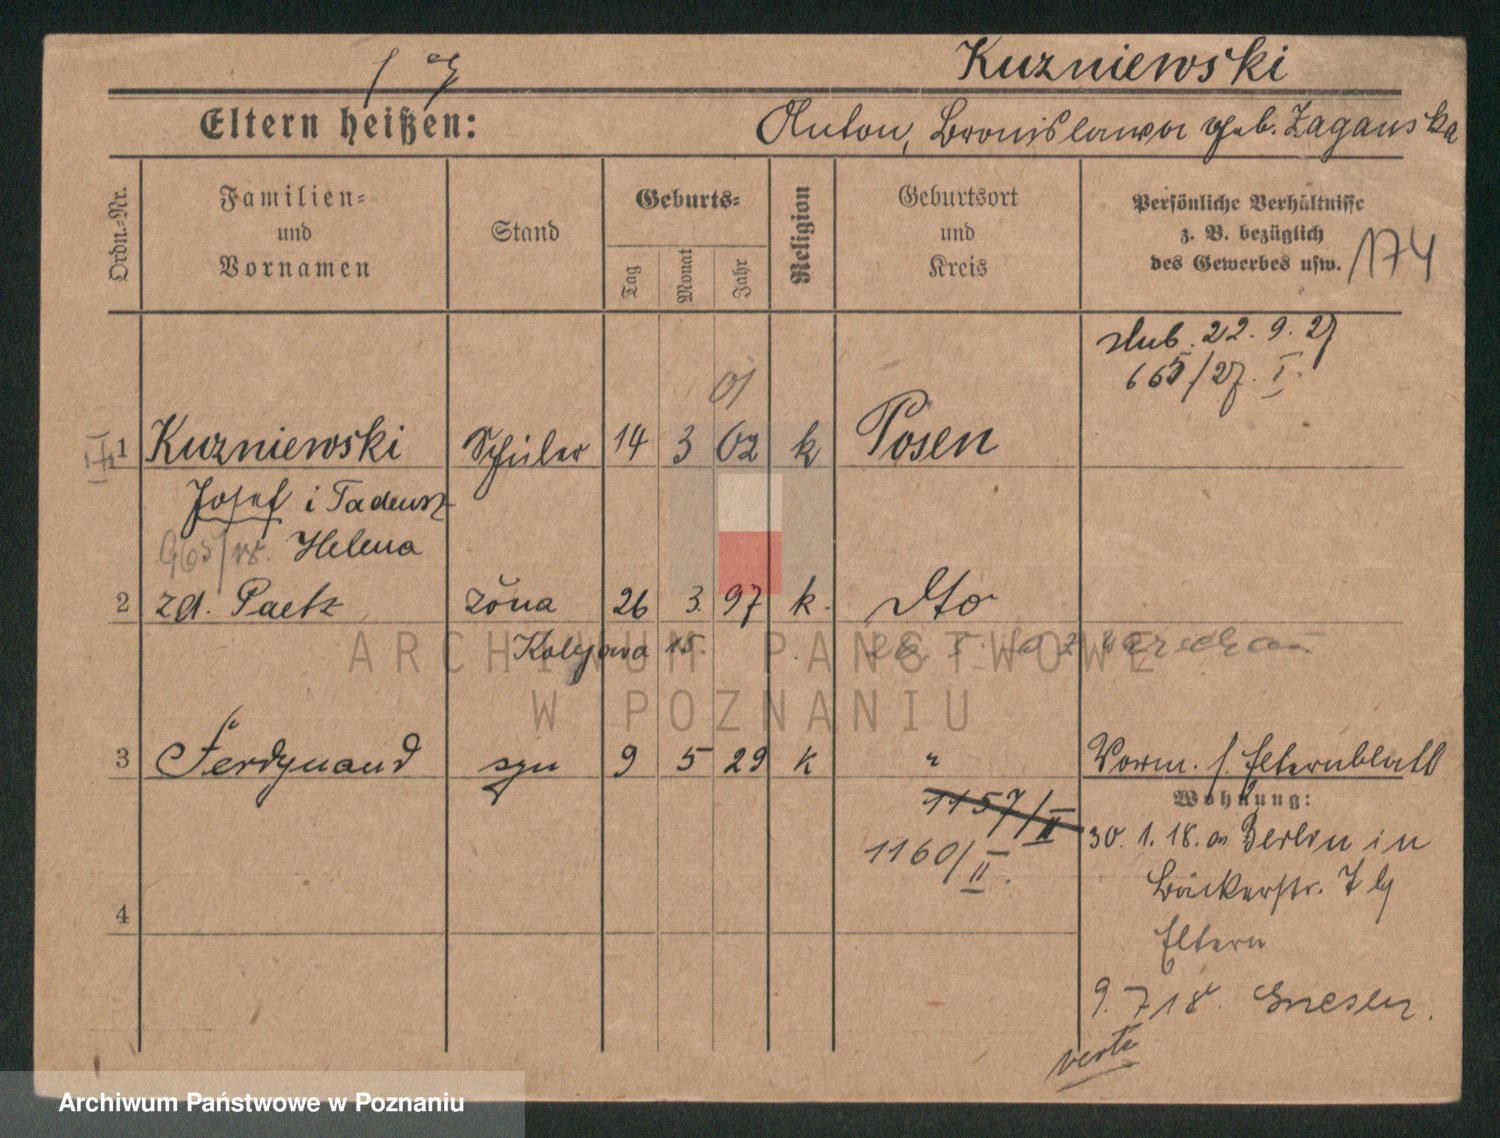 Kuzniewski
Eltern heißen: Anton, Bronislawa geb. Zaganska
Ordn.-Nr.
Familien-
und
Vornamen
Stand
Geburts-
Tag
Monat
Jahr
Religion
Geburtsort
und
Kreis
Persönliche Verhältnisse
z. B. bezüglich
des Gewerbes usw.
174
22. 9. 27
665/27. I.
01
1 Kuzniewski Schüler 14 3 02 k Posen
Josef i Tadeusz
965/18. Helena
2 zd. Paetz żona 26 3. 97 k. dto
Kolejowa 15.
ARCHIWUM PAŃSTWOWE
W POZNANIU
3 Ferdynand syn 9 5 29 k " Vorm. s. Elternblatt
Wohnung:
1157/II
30. 1. 18. an Berlin in
1160/II.
Bäckerstr.
4
Eltern
9. 7 18. Gnesen.
verte
Archiwum Państwowe w Poznaniu